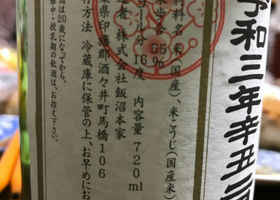 令和三年辛丑
料名 米(国産)、米こうじ(国産米)
米歩合 65%
コール分 16度 内容量 720ml
造者 株式会社飯沼本家
葉県印旛郡酒々井町馬橋106
方法 冷蔵庫に保管の上、お早めにお
酒は20歳になってから。
娠中・授乳期の飲酒は、お控え下さい。